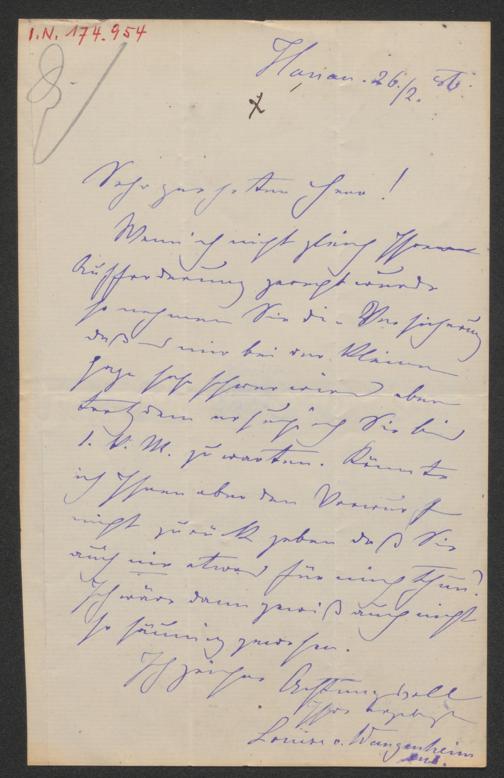 I.N. 174.954
Hanau. 26./2. 86.
Sehr geehrter Herr!
Wenn ich nicht gleich Ihrer
Aufforderung gerecht wurde
so nehmen Sie die Versicherung
daß mir bei der kleinen
Gage sehr schwer wird aber
trotzdem ersuche ich Sie bis
1. k. M. zu warten. Könnte
ich Ihnen aber den Vorwurf
nicht zurück geben daß Sie
auch nie etwas für mich thun?
Ich wäre dann gewiß auch nicht
so säumig gewesen.
Ich zeichne Achtungsvoll
Ihre ergebene
Louise v. Wangenheim